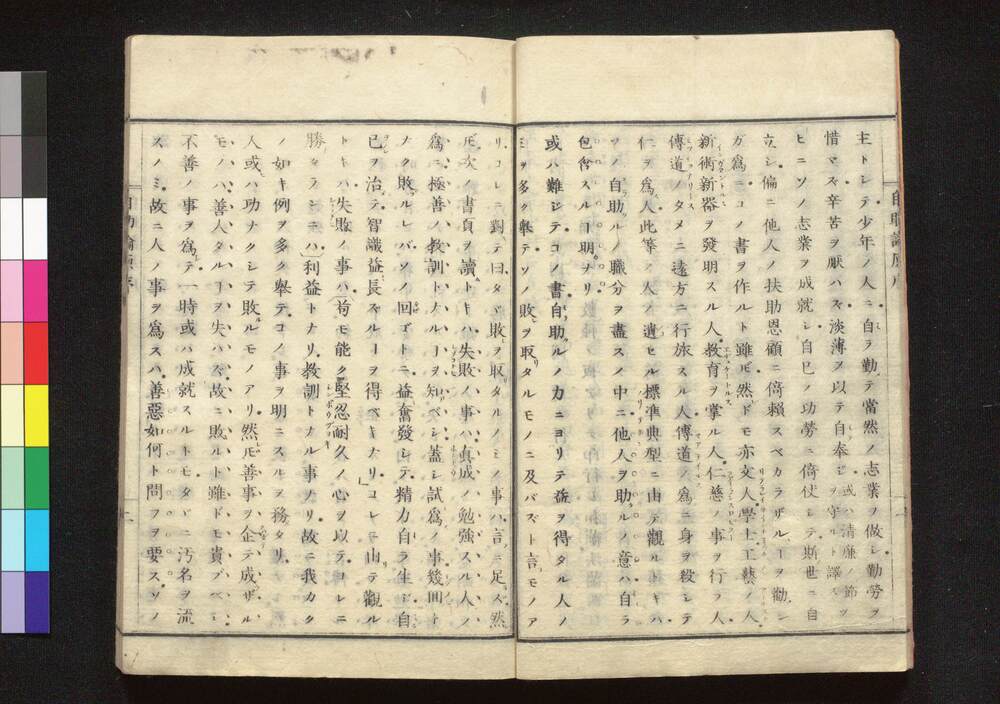 主トシテ少年ノ人ニ自ラ勤テ當然ノ志業ヲ做シ勤勞ヲ
惜マズ辛苦ヲ厭ハズ淡薄ヲ以テ自奉ジ或ハ清廉ノ節ヲ守ルト譯ス
ヒニソノ志業ヲ成就シ自己ノ功勞ニ倚仗シテ斯世ニ自
立シ偏ニ他人ノ扶助恩顧ニ倚賴スベカラザルヿヲ勸ン
ガ爲ニコノ書ヲ作ルト雖𪜈然ドモ亦文人學士工藝ノ人
新術新器ヲ發明スル人教育ヲ掌ル人仁慈ノ事ヲ行ラ人
傳道ノタメニ遠方ニ行旅スル人傳道ノ爲ニ身ヲ殺シテ
仁ヲ爲人此等ノ人ノ遺セル標準典型ニ由テ觀ルトキハ
ソノ自助ルノ職分ヲ盡スノ中ニ他人ヲ助ルノ意ハ自ラ
包含スルヿ明ナリ
或ハ難シテコノ書自助ルノ力ニヨリテ益ヲ得タル人ノ
ミヲ多ク擧テソノ敗ヲ取タルモノニ及バズト言モノア
リコレニ對テ曰タヾ敗ヲ取タルノミノ事ハ言ニ足ズ然
𪜈次ノ書頁ヲ讀トキハ失敗ノ事ハ眞成ノ勉強スル人ノ
爲ニ極善ノ教訓トナルヿヲ知ベシ蓋シ試爲ノ事幾回ト
ナク敗ルレバソノ回ゴトニ益奮發シテ精力自ラ生ジ自
已ヲ治テ智識益長スルヿヲ得ベキナリコレニ由リテ觀ル
トキハ失敗ノ事ハ苟モ能ク堅忍耐久ノ心ヲ以テコレニ
勝タランニハ利益トナリ教訓トナル事ナリ故ニ我カク
ノ如キ例ヲ多ク擧テコノ事ヲ明ニスルヲ務タリ
人或ハ功ナクシテ敗ルモノアリ然𪜈善事ヲ企テ成ザル
モノハ善人タルヿヲ失ハズ故ニ敗ルト雖ドモ貴ブベシ
不善ノ事ヲ爲テ一時或ハ成就スルトモタヾニ汚名ヲ流
スノミ故ニ人ノ事ヲ爲スハ善惡如何ト問フヲ要スソノ